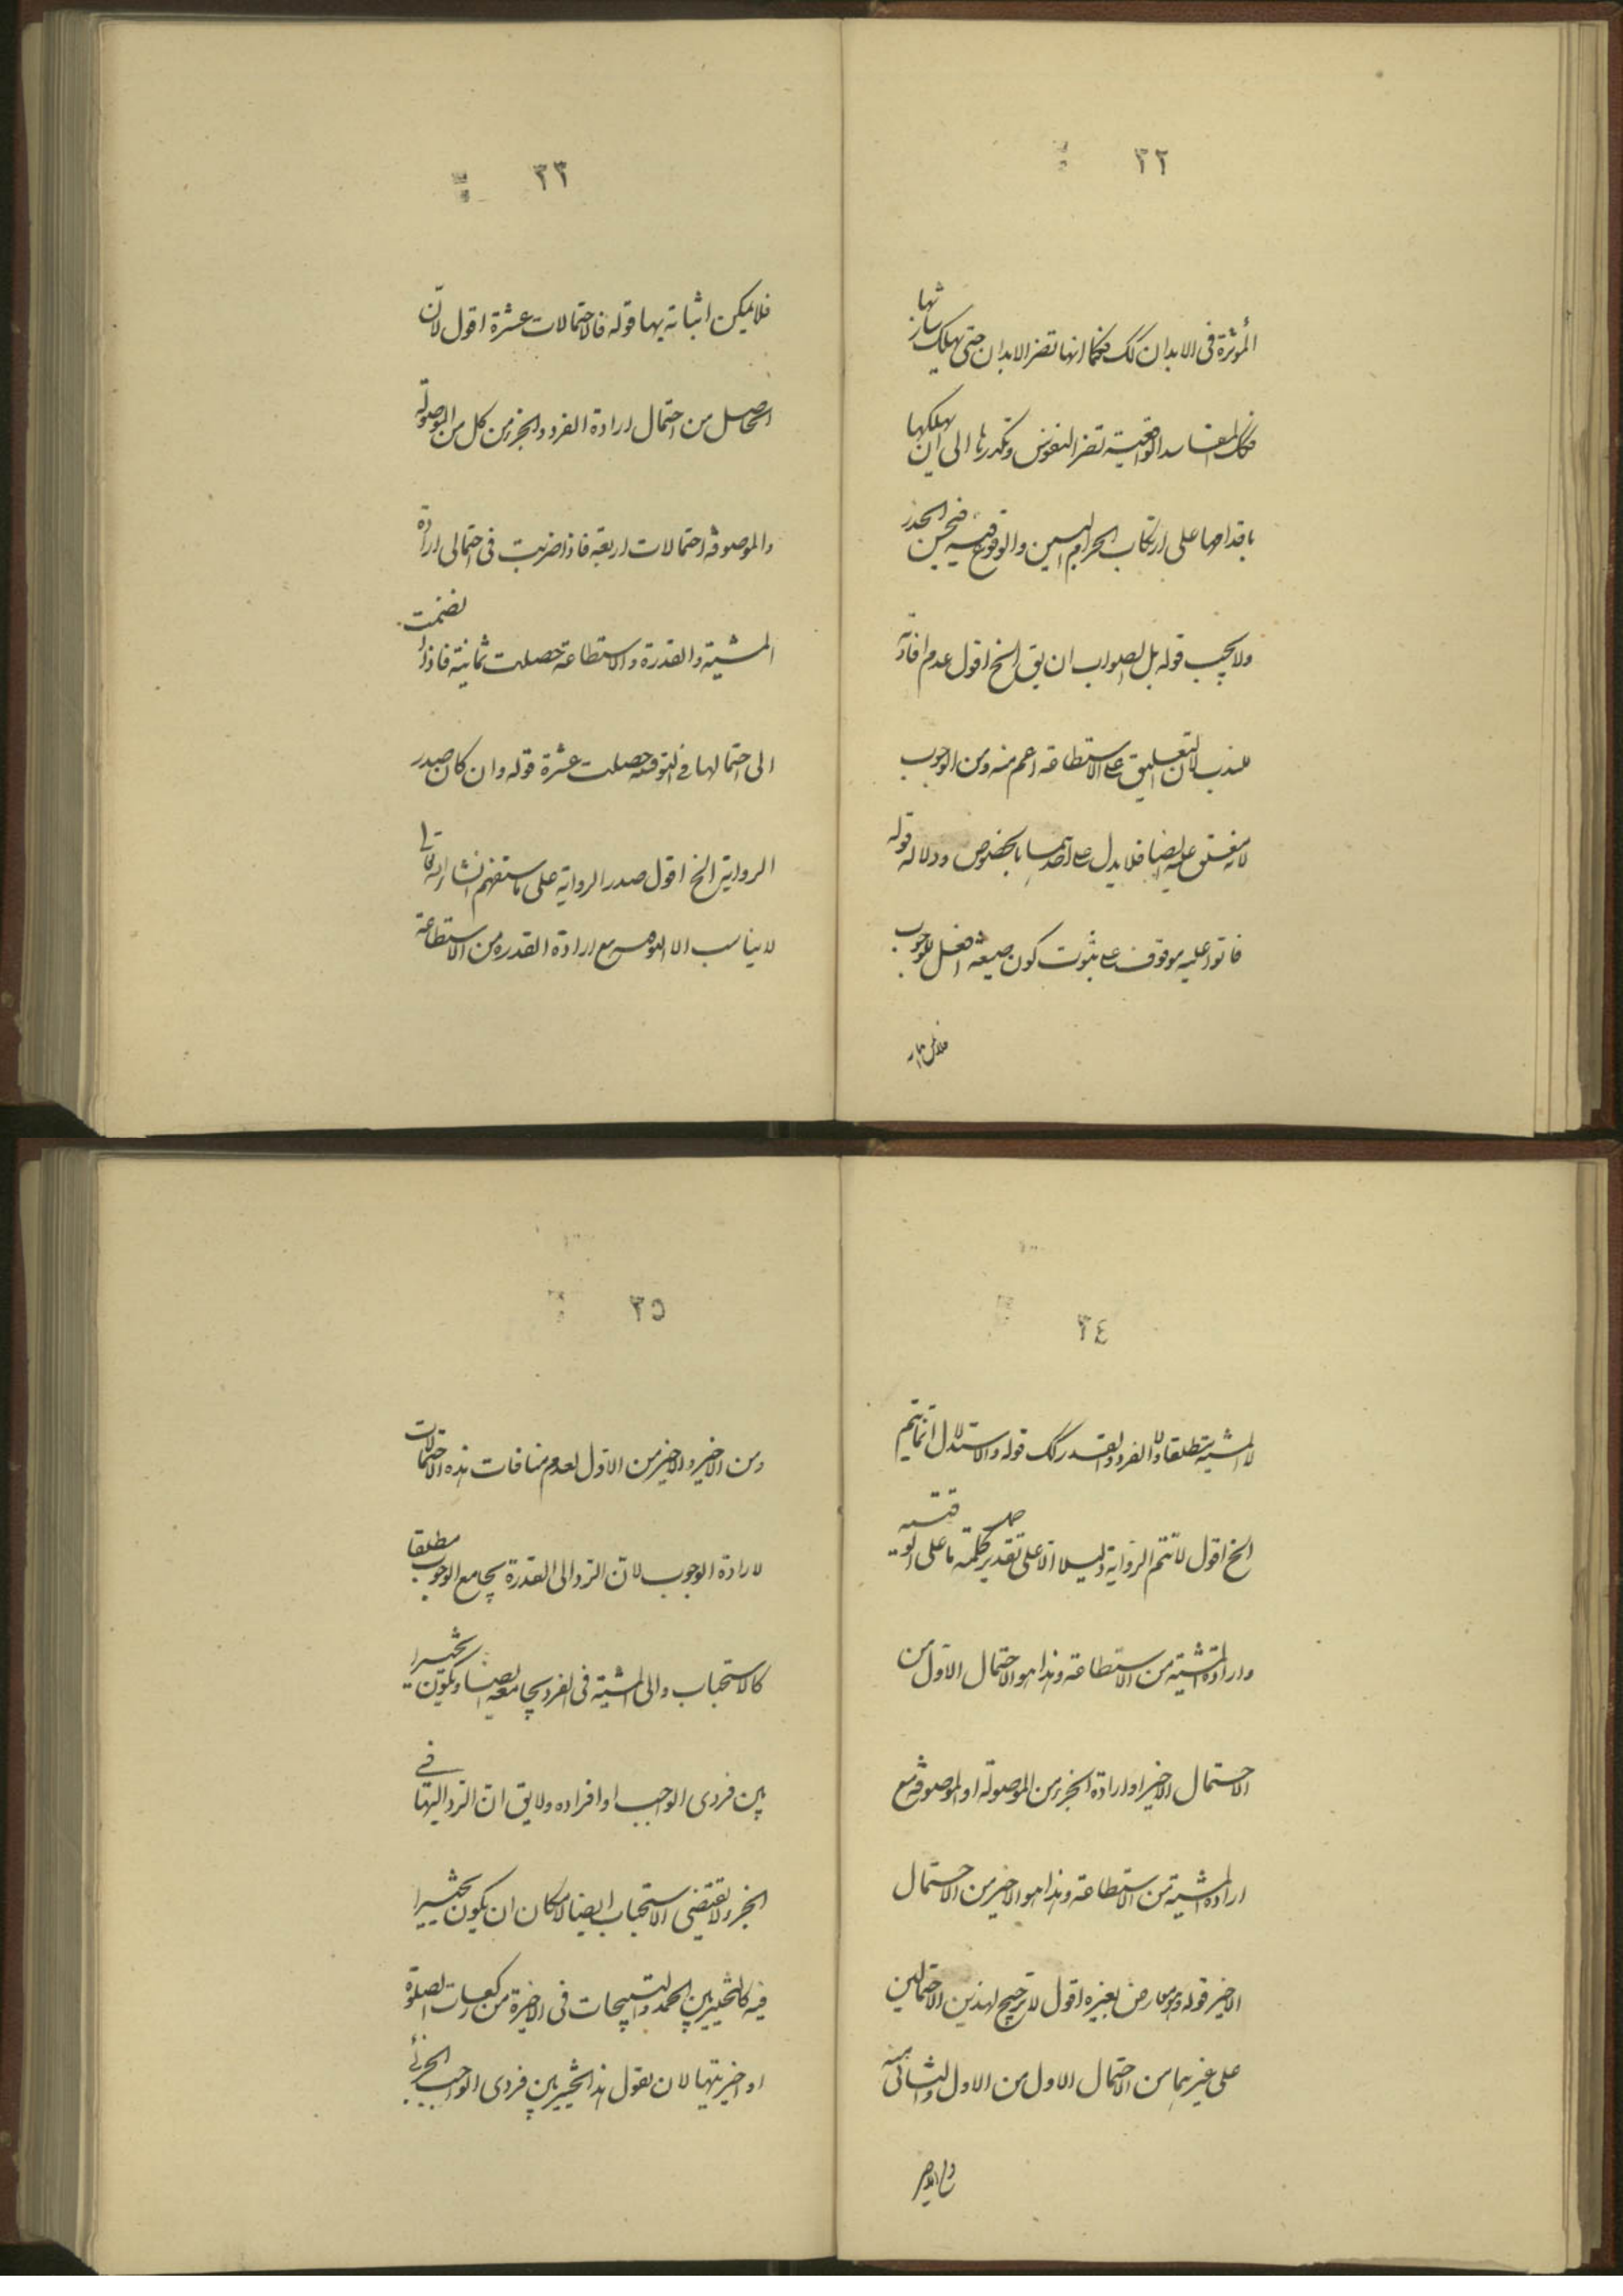 ٣٢
المؤثرة فى الابدان كك فكما انها تضر الابدان حتى يهلك شاربها
فكك المفاسد الواقعية تضر النفوس وتكدرها الى ان يهلكها
باقدامها على ارتكاب الحرام المبين والوقوع فيه فيحسن الحذر
ولا يجب قوله بل الصواب ان يق الخ اقول عدم افادته
للندب لان التعليق على الاستطاعة اعم منه ومن الوجوب
لانه يتعلق عليه ايضا فلا يدل على احدهما بالخصوص ودلالة قوله
فاتوا عليه موقوف على ثبوت كون صيغة افعل للوجوب
فلا يمكن
٣٣
فلا يمكن اثباته بها قوله فالاحتمالات عشرة اقول لان
الحاصل من احتمال ارادة الفرد والجزء من كل من الموصولة
والموصوفة احتمالات اربعة فاذا ضربت فى احتمالى ارادة
المشية والقدرة والاستطاعة حصلت ثمانية فاذا انضمت
الى احتمالها فى التوقيتية حصلت عشرة قوله وان كان صدر
الرواية الخ اقول صدر الرواية على ما ستفهم انشاء الله تعالى
لا يناسب الا مع ارادة القدرة من الاستطاعة
٣٤
لا المشية مطلقا ولا الفرد والقدرة كك قوله والاستدلال انما يتم
الخ اقول لا تتم الرواية دليلا الا على تقدير حمل كلمة ما على الوقتية
وارادة المشية من الاستطاعة وهذا هو الاحتمال الاول من
الاحتمال الاخير او ارادة الجزء من الموصولة او الموصوفة مع
ارادة المشية من الاستطاعة وهذا هو الاخير من الاحتمال
الاخير قوله وهو معارض بغيره اقول لا ترجيح لهذين الاحتمالين
على غيرهما من الاحتمال الاول من الاول والثانى منه
ومن الاخير
٣٥
ومن الاخير والاخير من الاول لعدم منافات هذه الاحتمالات
لارادة الوجوب لان الرد الى القدرة يجامع الوجوب مطلقا
كالاستحباب والى المشية فى الفرد يجامعه ايضا ويكون تخييرا
بين فردى الواجب او افراده ولا يق ان الرد اليها فى
الجزء لا يقتضى الاستحباب ايضا لامكان ان يكون تخييرا
فيه كالتخيير بين الحمد والتسبيحات فى الاخيرة من ركعات الصلوة
او اخيرتيها لان نقول هذا تخيير بين فردى الواجب الجزئى